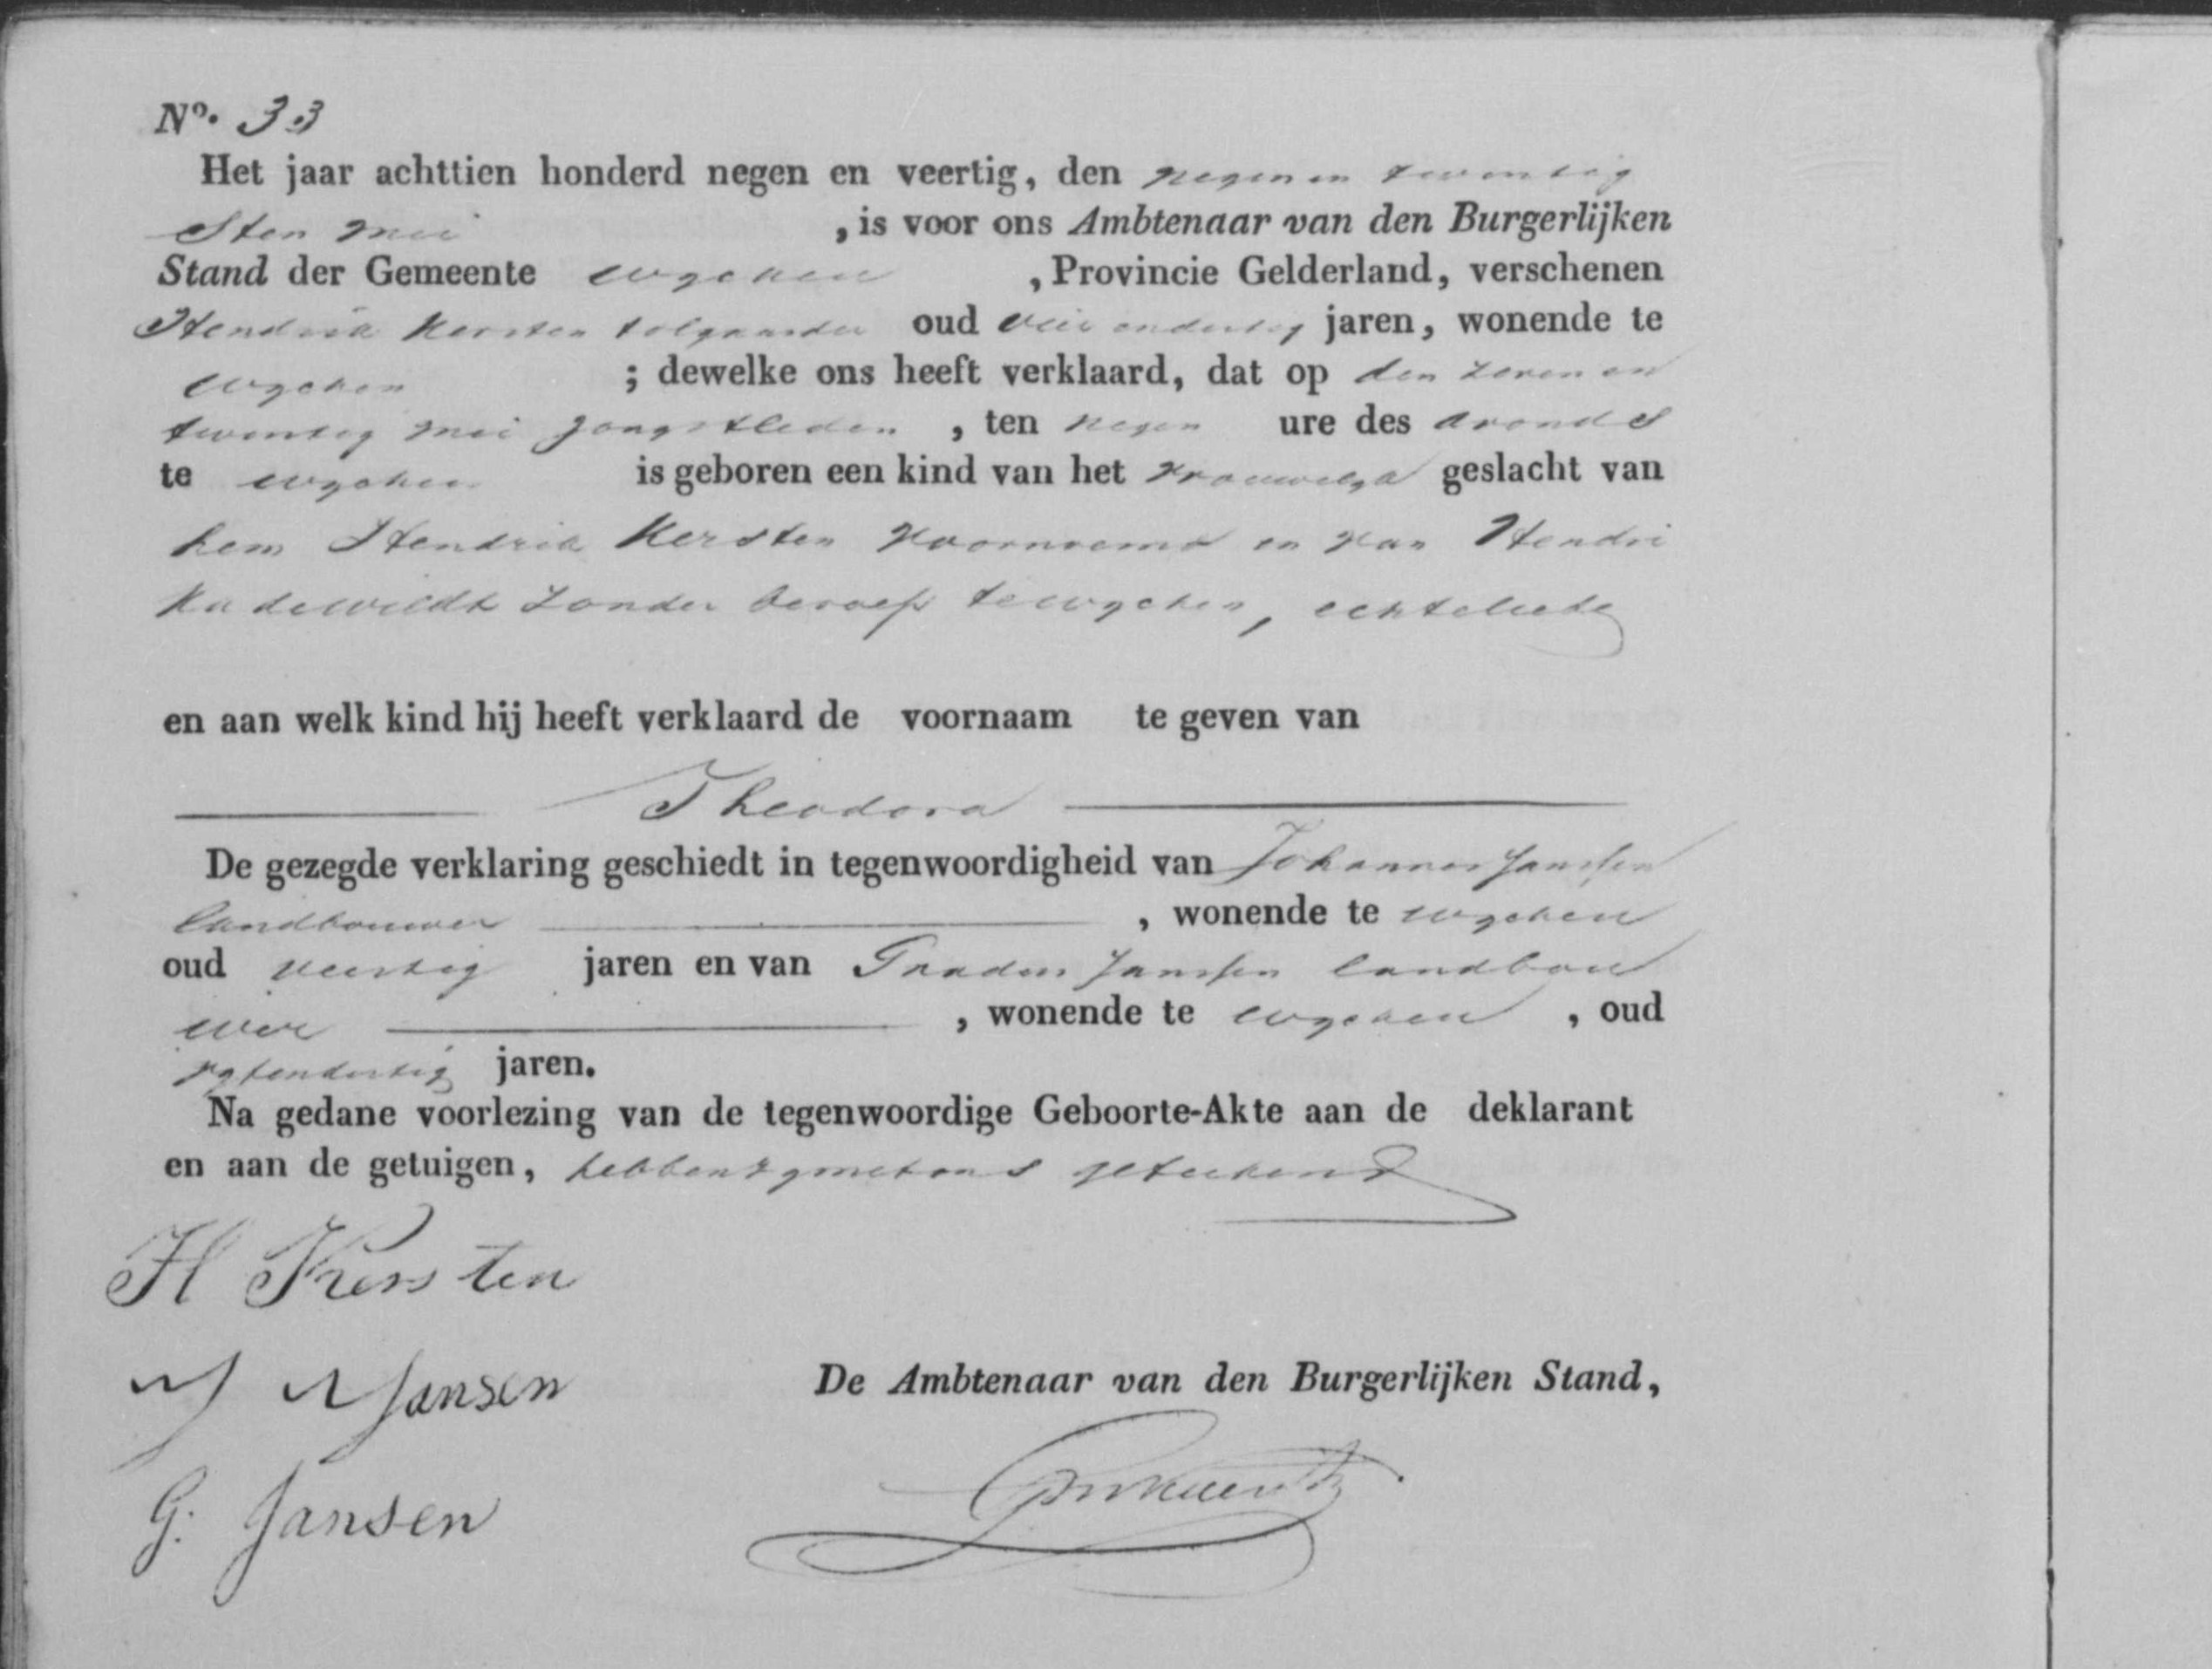 No. 33
Het jaar achttien honderd negen en veertig, den negen en twentig
sten mei , is voor ons Ambtenaar van den Burgerlijken
Stand der Gemeente Wychen , Provincie Gelderland, verschenen
Hendrik Kersten tolgaarder oud vier en dertig jaren, wonende te
Wychen ; dewelke ons heeft verklaard, dat op den zeven en
twentig mei jongstleden , ten negen ure des avonds
te Wychen is geboren een kind van het vrouwelyk geslacht van
hem Hendrik Kersten voornoemd en van Hendri
ka de Wildt zonder beroep te Wychen, echtelieden
en aan welk kind hij heeft verklaard de voornaam te geven van
Theodora
De gezegde verklaring geschiedt in tegenwoordigheid van Johannes Janssen
landbouwer , wonende te Wychen
oud veertig jaren en van Gradus Janssen landbou
wer , wonende te Wychen , oud
vyfendertig jaren.
Na gedane voorlezing van de tegenwoordige Geboorte-Akte aan de deklarant
en aan de getuigen, hebben zy met ons geteekend
H Kersten
Jansen
De Ambtenaar van den Burgerlijken Stand,
G. Jansen